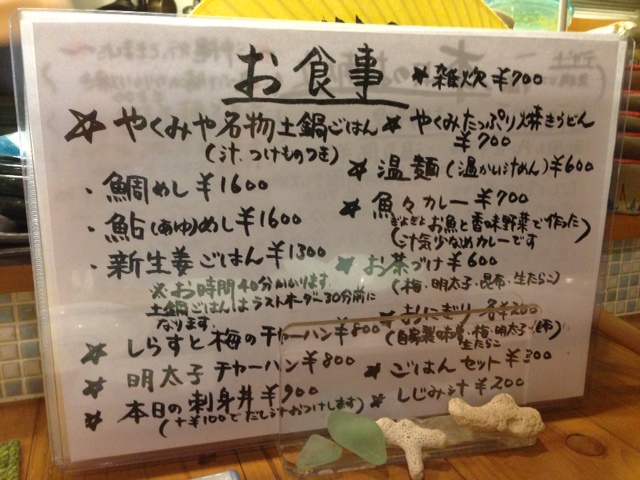 お食事
★やくみや名物土鍋ごはん
(汁、つけものつき)
・鯛めし ¥1600
・鮎(あゆ)めし ¥1600
・新生姜ごはん ¥1300
※お時間40分かかります
土鍋ごはんはラストオーダー30分前に
なります
★しらすと梅のチャーハン ¥800
★明太子チャーハン ¥800
★本日の刺身丼 ¥900
(+¥100でだし汁おつけします)
★雑炊 ¥700
★やくみたっぷり焼きうどん
¥700
★温麺(温かい汁めん) ¥600
★魚々カレー ¥700
ぎょぎょ
(お魚と香味野菜で作った
汁気少なめカレーです)
★お茶づけ ¥600
(梅・明太子・昆布・生たらこ)
★おにぎり 各¥200
(自家製味噌・梅・明太子・
生たらこ
★ごはんセット ¥300
★しじみ汁 ¥200